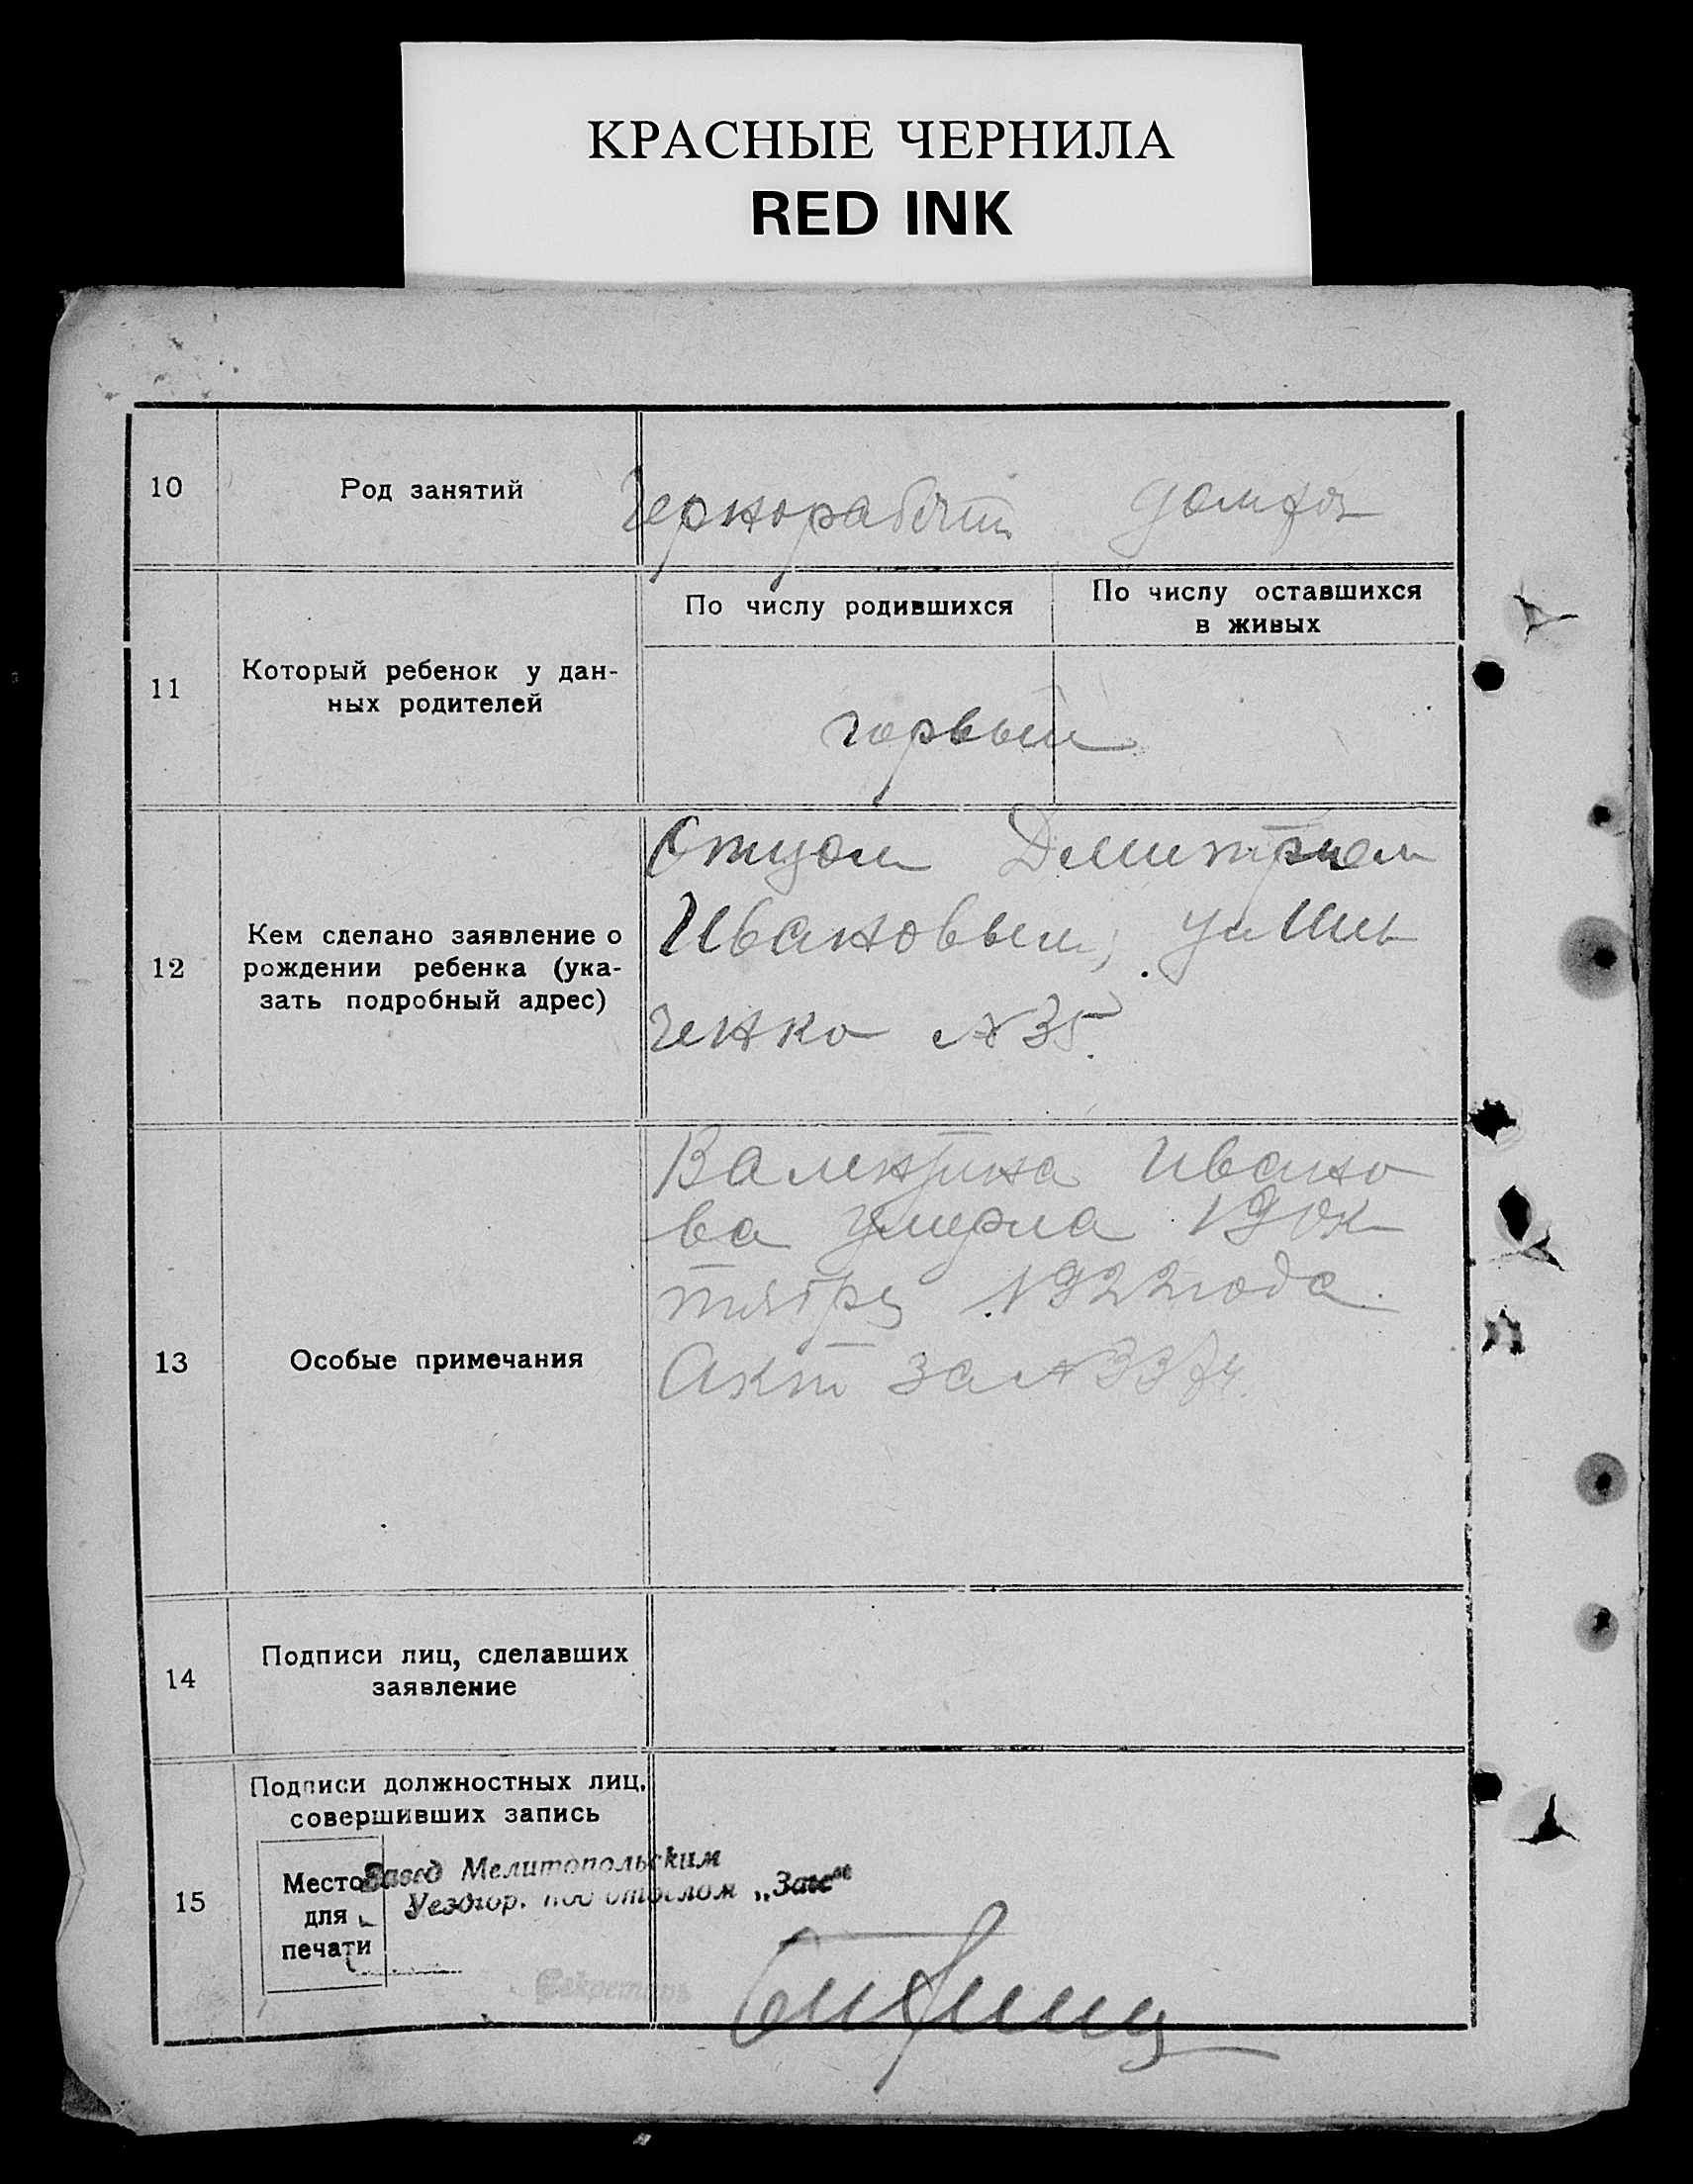 КРАСНЫЕ ЧЕРНИЛА
RED INK
10
Род занятий
Чернорабочий
домхоз
11
Который ребенок у дан-
ных родителей
По числу родившихся
По числу оставшихся
в живых
первый
12
Кем сделано заявление о
рождении ребенка (ука-
зать подробный адрес)
Отцом Дмитрием
Ивановым, ул
ченко №35.
13
Особые примечания
Валентина Ивано
ва умерла 19 ок
тября 1922 года.
Акт за №
14
Подписи лиц, сделавших
заявление
15
Подписи должностных лиц,
совершивших запись
Место
для
печати
Завед Мелитопольским
Уездгор. подотделом „Загс“
Секретарь